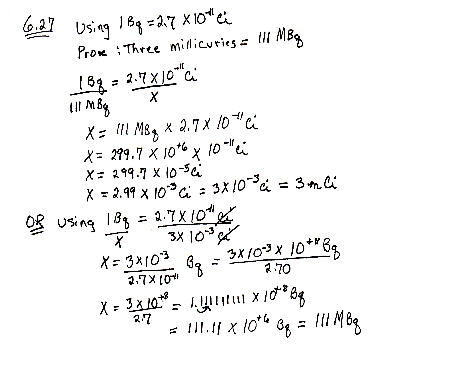 6.27 Using 1 Bq = 2.7 X 10⁻¹¹ Ci
Prove : Three millicuries = 111 MBq
1 Bq / 111 MBq = 2.7 X 10⁻¹¹ Ci / X
X = 111 MBq X 2.7 X 10⁻¹¹ Ci
X = 299.7 X 10⁺⁶ X 10⁻¹¹ Ci
X = 299.7 X 10⁻⁵ Ci
X = 2.99 X 10⁻³ Ci = 3X10⁻³ Ci = 3 m Ci
OR Using 1 Bq / X = 2.7 X 10⁻¹¹ Ci / 3X 10⁻³ Ci
X = 3X10⁻³ / 2.7X10⁻¹¹ Bq = 3X10⁻³ X 10⁺¹¹ Bq / 2.70
X = 3X10⁺⁸ / 2.7 = 1.11111111 X 10⁺⁸ Bq
= 111.11 X 10⁺⁶ Bq = 111 MBq